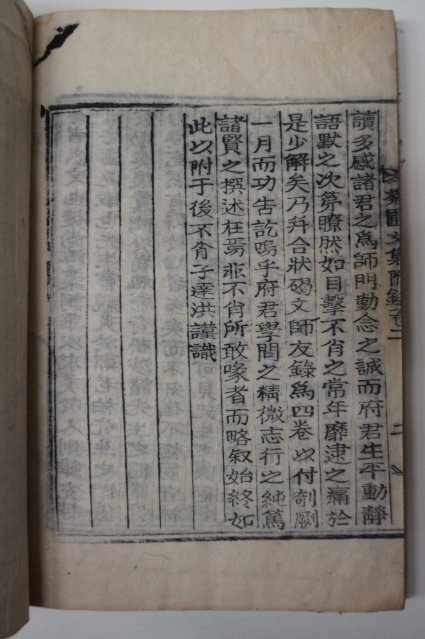 讀多感諸君之爲師門動念之誠而府君生平動靜
語默之次第瞭然如目擊不肖之常年靡逮之痛於
是少解矣乃幷合狀碣文師友錄爲四卷以付剞劂
一月而功告訖嗚乎府君學問之精微志行之純篤
諸賢之撰述在焉非不肖所敢喙者而略叙始終如
此以附于後不肖子達洪謹識
文集附錄卷二